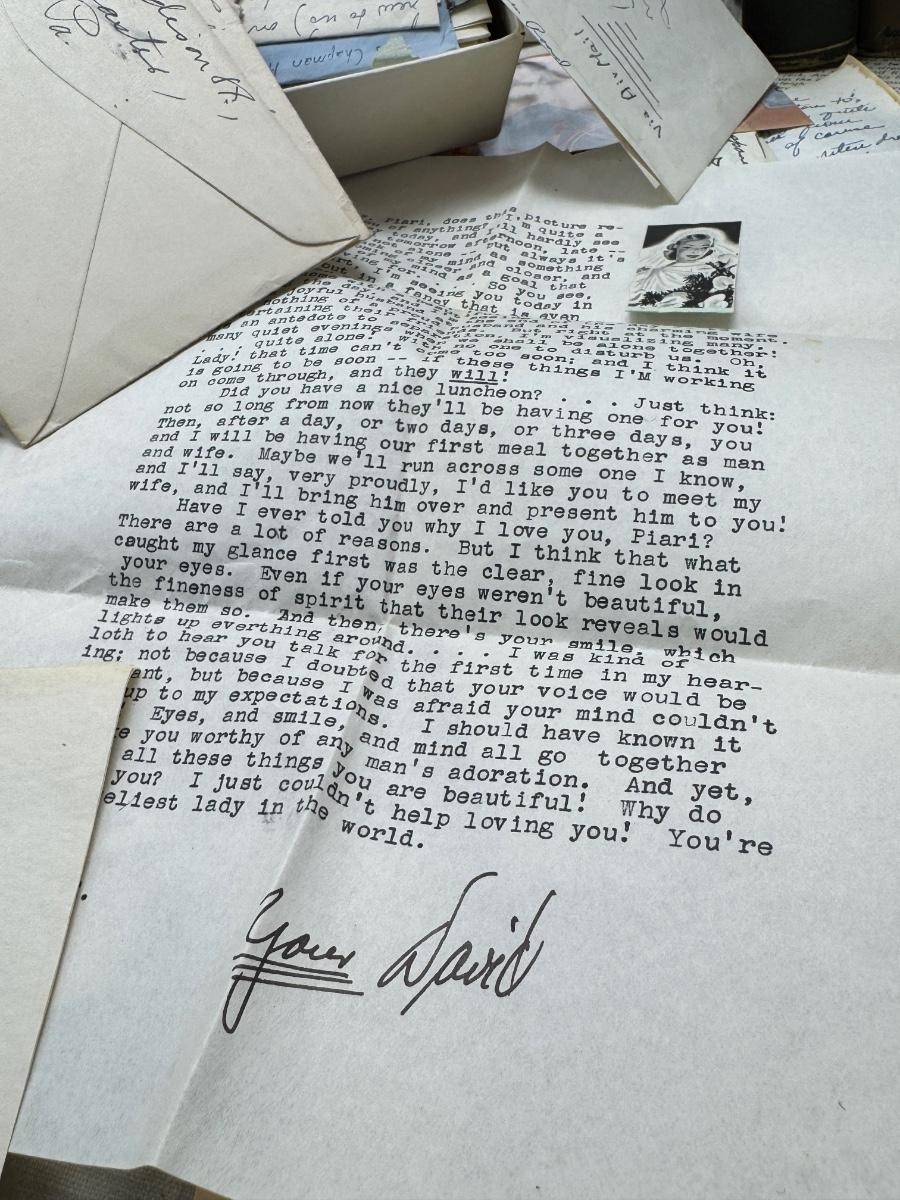 dison St.,
Via Air Mail
Chapman
new to us) on
Piari, does this picture re-
of anything? I'm quite a
today, and I'll hardly see
tomorrow afternoon, late --
not alone -- but always it's
of my mind as something
closer and closer, and
my mind as a goal that
for. . . . So you see,
but in I'm seeing you today in
a fancy that is even
the day
joyful husband and his charming wife
nothing of a But right at the moment.
ertaining their I'm visualizing many.
an antedote to we shall be alone together!
many quiet evenings when no one to disturb us. Oh,
. . quite alone! With
Lady! that time can't come too soon; and I think it
is going to be soon -- if these things I'M working
on come through, and they will!
Did you have a nice luncheon? . . . Just think:
not so long from now they'll be having one for you!
Then, after a day, or two days, or three days, you
and I will be having our first meal together as man
and wife. Maybe we'll run across some one I know,
and I'll say, very proudly, I'd like you to meet my
wife, and I'll bring him over and present him to you!
Have I ever told you why I love you, Piari?
There are a lot of reasons. But I think that what
caught my glance first was the clear, fine look in
your eyes. Even if your eyes weren't beautiful,
the fineness of spirit that their look reveals would
make them so. And then, there's your smile, which
lights up everthing around. . . . . I was kind of
loth to hear you talk for the first time in my hear-
ing; not because I doubted that your voice would be
ant, but because I was afraid your mind couldn't
up to my expectations. I should have known it
Eyes, and smile, and mind all go together
e you worthy of any man's adoration. And yet,
all these things you are beautiful! Why do
you? I just couldn't help loving you! You're
eliest lady in the world.
Your David